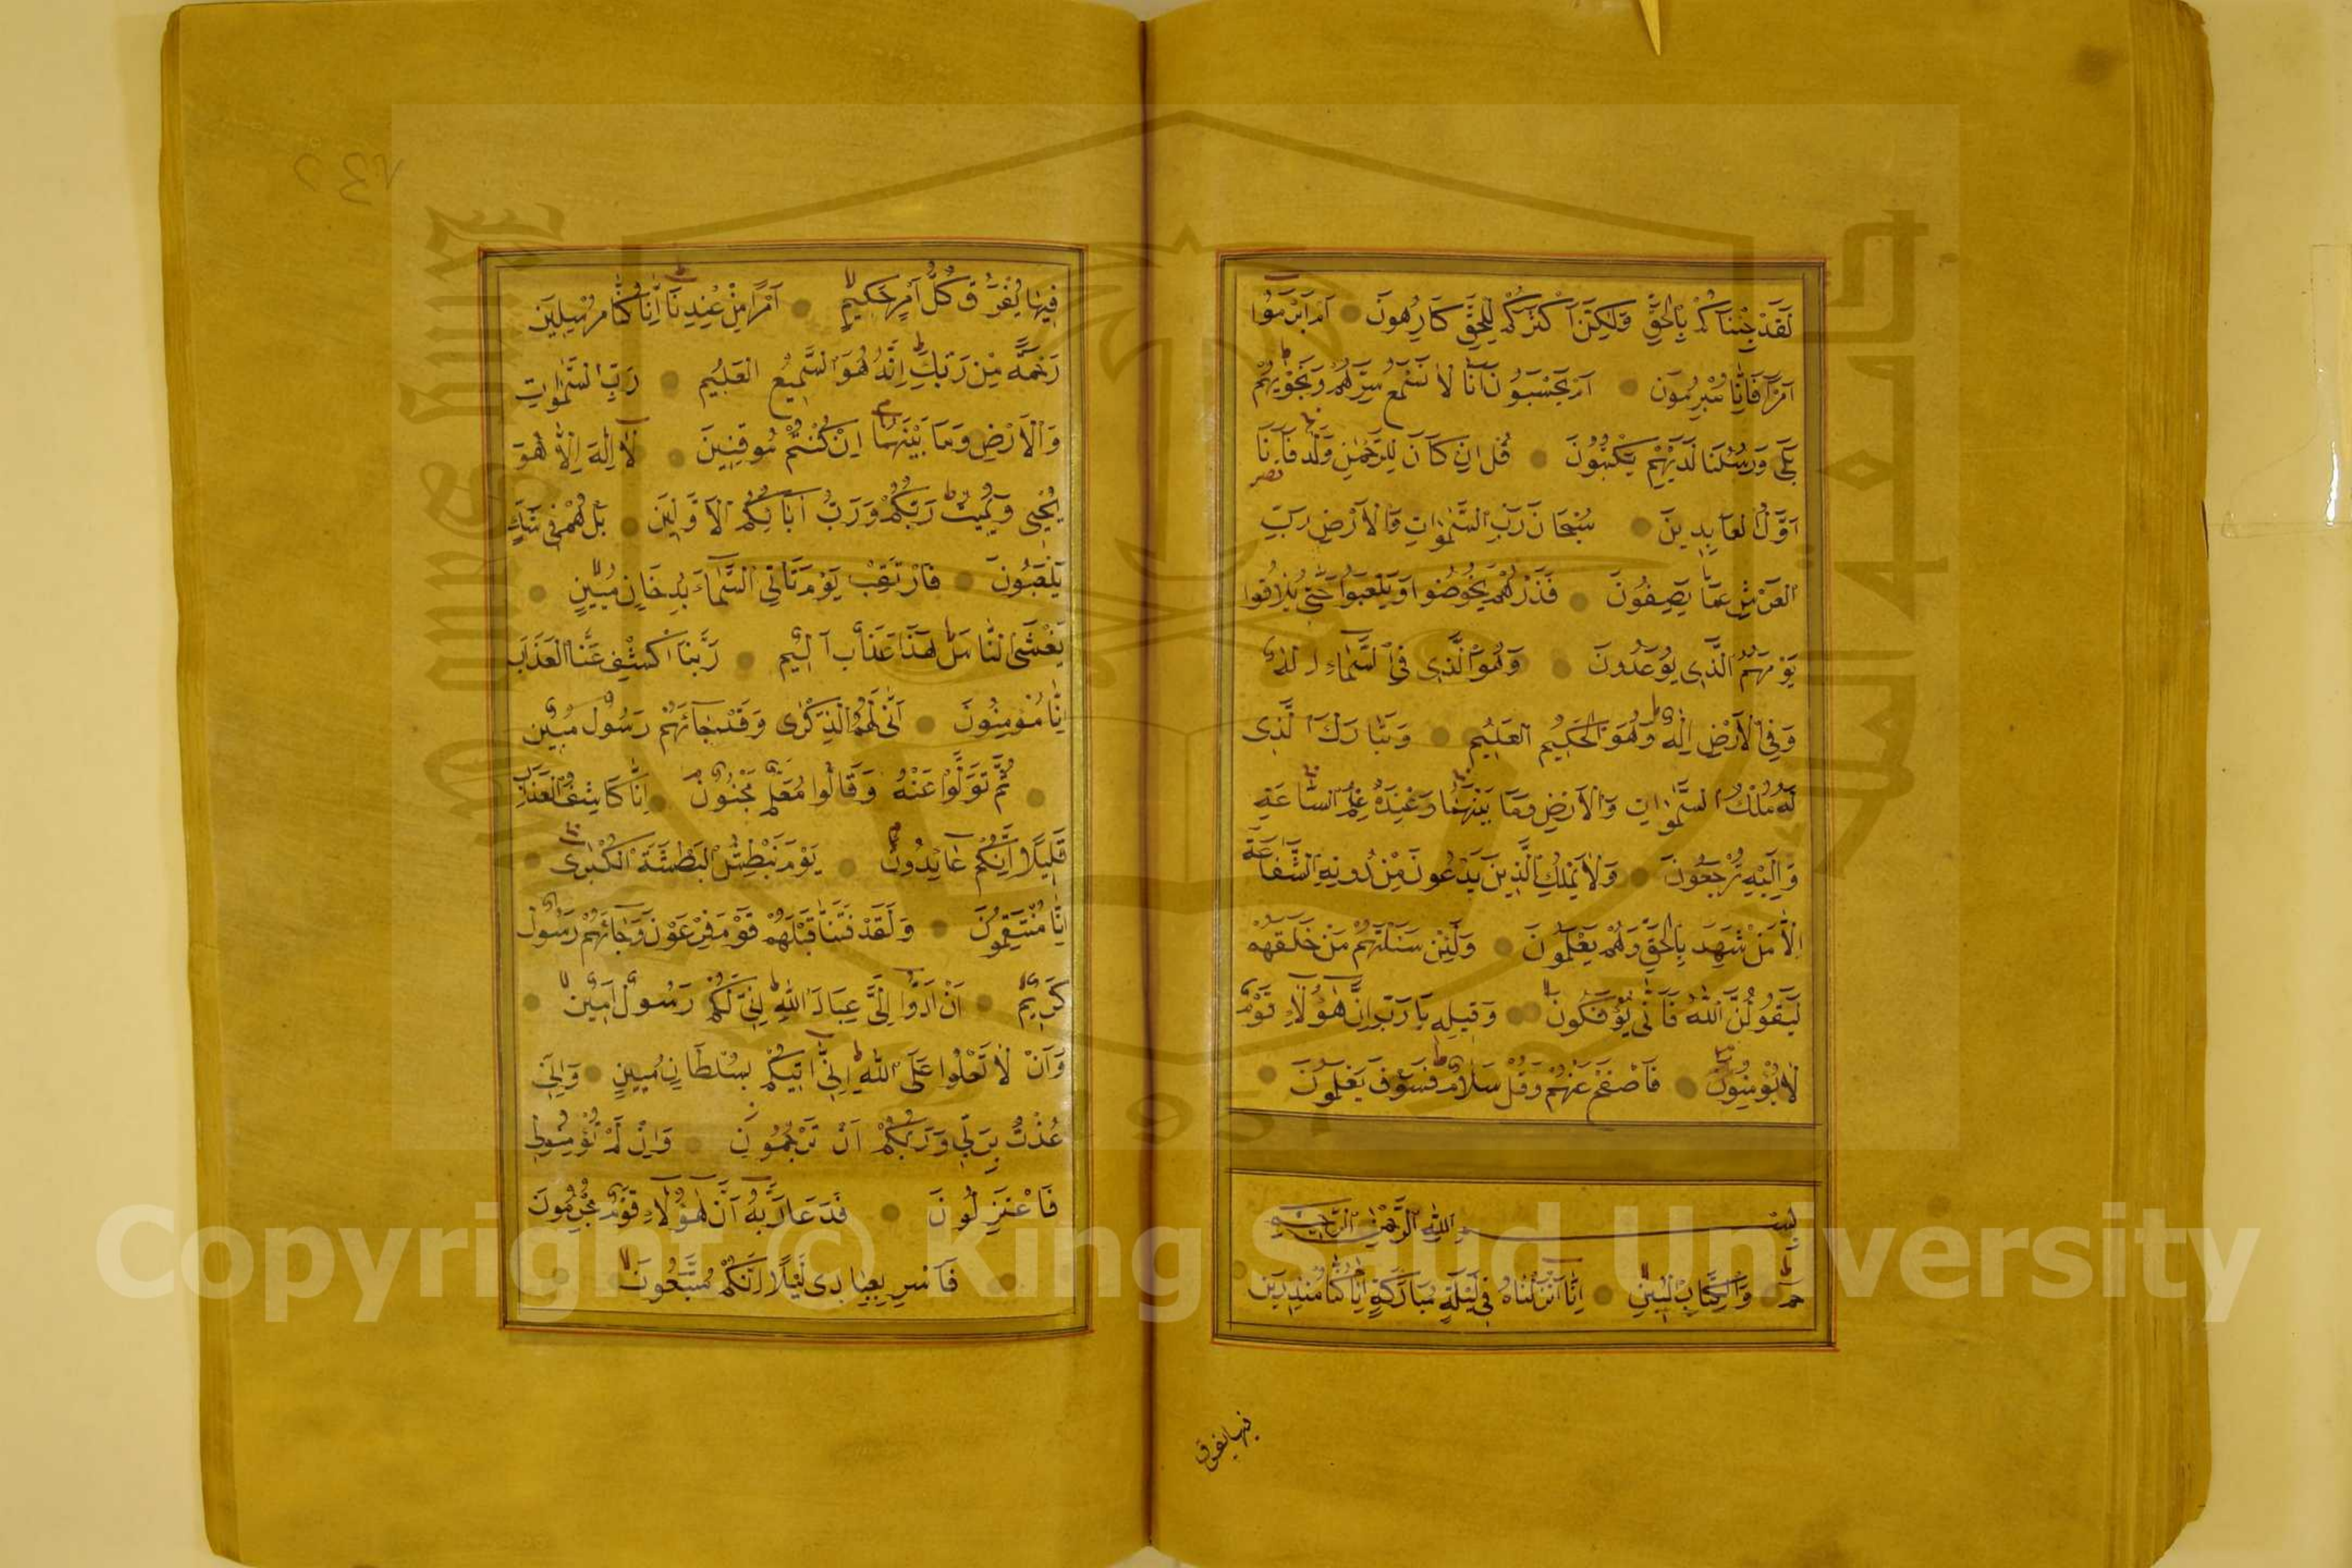 لَقَدْ جِئْنَاكُمْ بِالْحَقِّ وَلٰكِنَّ اَكْثَرَكُمْ لِلْحَقِّ كَارِهُونَ اَمْ اَبْرَمُٓوا
اَمْرًا فَاِنَّا مُبْرِمُونَ اَمْ يَحْسَبُونَ اَنَّا لَا نَسْمَعُ سِرَّهُمْ وَنَجْوٰيهُمْ
بَلٰى وَرُسُلُنَا لَدَيْهِمْ يَكْتُبُونَ قُلْ اِنْ كَانَ لِلرَّحْمٰنِ وَلَدٌ فَاَنَا
اَوَّلُ الْعَابِدِينَ سُبْحَانَ رَبِّ السَّمٰوَاتِ وَالْاَرْضِ رَبِّ
الْعَرْشِ عَمَّا يَصِفُونَ فَذَرْهُمْ يَخُوضُوا وَيَلْعَبُوا حَتّٰى يُلَاقُوا
يَوْمَهُمُ الَّذِى يُوعَدُونَ وَهُوَ الَّذِى فِى السَّمَٓاءِ اِلٰهٌ
وَفِى الْاَرْضِ اِلٰهٌ وَهُوَ الْحَكِيمُ الْعَلِيمُ وَتَبَارَكَ الَّذِى
لَهُ مُلْكُ السَّمٰوَاتِ وَالْاَرْضِ وَمَا بَيْنَهُمَا وَعِنْدَهُ عِلْمُ السَّاعَةِ
وَاِلَيْهِ تُرْجَعُونَ وَلَا يَمْلِكُ الَّذِينَ يَدْعُونَ مِنْ دُونِهِ الشَّفَاعَةَ
اِلَّا مَنْ شَهِدَ بِالْحَقِّ وَهُمْ يَعْلَمُونَ وَلَئِنْ سَئَلْتَهُمْ مَنْ خَلَقَهُمْ
لَيَقُولُنَّ اللّٰهُ فَاَنّٰى يُؤْفَكُونَ وَقِيلِهِ يَا رَبِّ اِنَّ هٰٓؤُلَٓاءِ قَوْمٌ
لَا يُؤْمِنُونَ فَاصْفَحْ عَنْهُمْ وَقُلْ سَلَامٌ فَسَوْفَ يَعْلَمُونَ
بِسْمِ اللّٰهِ الرَّحْمٰنِ الرَّحِيمِ
حٰمٓ وَالْكِتَابِ الْمُبِينِ اِنَّٓا اَنْزَلْنَاهُ فِى لَيْلَةٍ مُبَارَكَةٍ اِنَّا كُنَّا مُنْذِرِينَ
فيها يفرق
فِيهَا يُفْرَقُ كُلُّ اَمْرٍ حَكِيمٍ اَمْرًا مِنْ عِنْدِنَا اِنَّا كُنَّا مُرْسِلِينَ
رَحْمَةً مِنْ رَبِّكَ اِنَّهُ هُوَ السَّمِيعُ الْعَلِيمُ رَبِّ السَّمٰوَاتِ
وَالْاَرْضِ وَمَا بَيْنَهُمَا اِنْ كُنْتُمْ مُوقِنِينَ لَٓا اِلٰهَ اِلَّا هُوَ
يُحْيِى وَيُمِيتُ رَبُّكُمْ وَرَبُّ اٰبَٓائِكُمُ الْاَوَّلِينَ بَلْ هُمْ فِى شَكٍّ
يَلْعَبُونَ فَارْتَقِبْ يَوْمَ تَاْتِى السَّمَٓاءُ بِدُخَانٍ مُبِينٍ
يَغْشَى النَّاسَ هٰذَا عَذَابٌ اَلِيمٌ رَبَّنَا اكْشِفْ عَنَّا الْعَذَابَ
اِنَّا مُؤْمِنُونَ اَنّٰى لَهُمُ الذِّكْرٰى وَقَدْ جَٓاءَهُمْ رَسُولٌ مُبِينٌ
ثُمَّ تَوَلَّوْا عَنْهُ وَقَالُوا مُعَلَّمٌ مَجْنُونٌ اِنَّا كَاشِفُوا الْعَذَابِ
قَلِيلًا اِنَّكُمْ عَٓائِدُونَ يَوْمَ نَبْطِشُ الْبَطْشَةَ الْكُبْرٰى
اِنَّا مُنْتَقِمُونَ وَلَقَدْ فَتَنَّا قَبْلَهُمْ قَوْمَ فِرْعَوْنَ وَجَٓاءَهُمْ رَسُولٌ
كَرِيمٌ اَنْ اَدُّٓوا اِلَىَّ عِبَادَ اللّٰهِ اِنِّى لَكُمْ رَسُولٌ اَمِينٌ
وَاَنْ لَا تَعْلُوا عَلَى اللّٰهِ اِنِّٓى اٰتِيكُمْ بِسُلْطَانٍ مُبِينٍ وَاِنِّى
عُذْتُ بِرَبِّى وَرَبِّكُمْ اَنْ تَرْجُمُونِ وَاِنْ لَمْ تُؤْمِنُوا لِى
فَاعْتَزِلُونَ فَدَعَا رَبَّهُٓ اَنَّ هٰٓؤُلَٓاءِ قَوْمٌ مُجْرِمُونَ
فَاَسْرِ بِعِبَادِى لَيْلًا اِنَّكُمْ مُتَّبَعُونَ
Copyright © King Saud University
1957